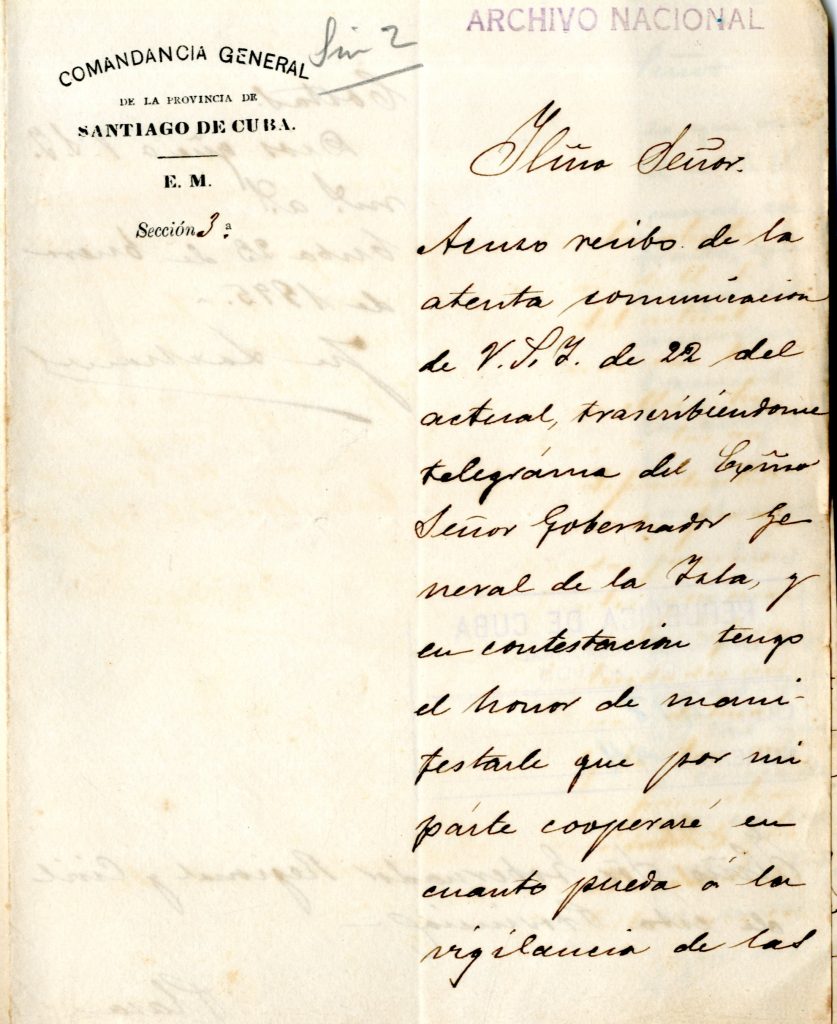 ARCHIVO NACIONAL
COMANDANCIA GENERAL
DE LA PROVINCIA DE
SANTIAGO DE CUBA.
E. M.
Sección 3ª.
Ilmo Señor.
Acuso recibo de la
atenta comunicacion
de V.S.I. de 22 del
actual, trascribiendome
telegráma del Exmo
Señor Gobernador Ge
neral de la Isla, y
en contestacion tengo
el honor de mani-
festarle que por mi
párte cooperaré en
cuanto pueda á la
vigilancia de las